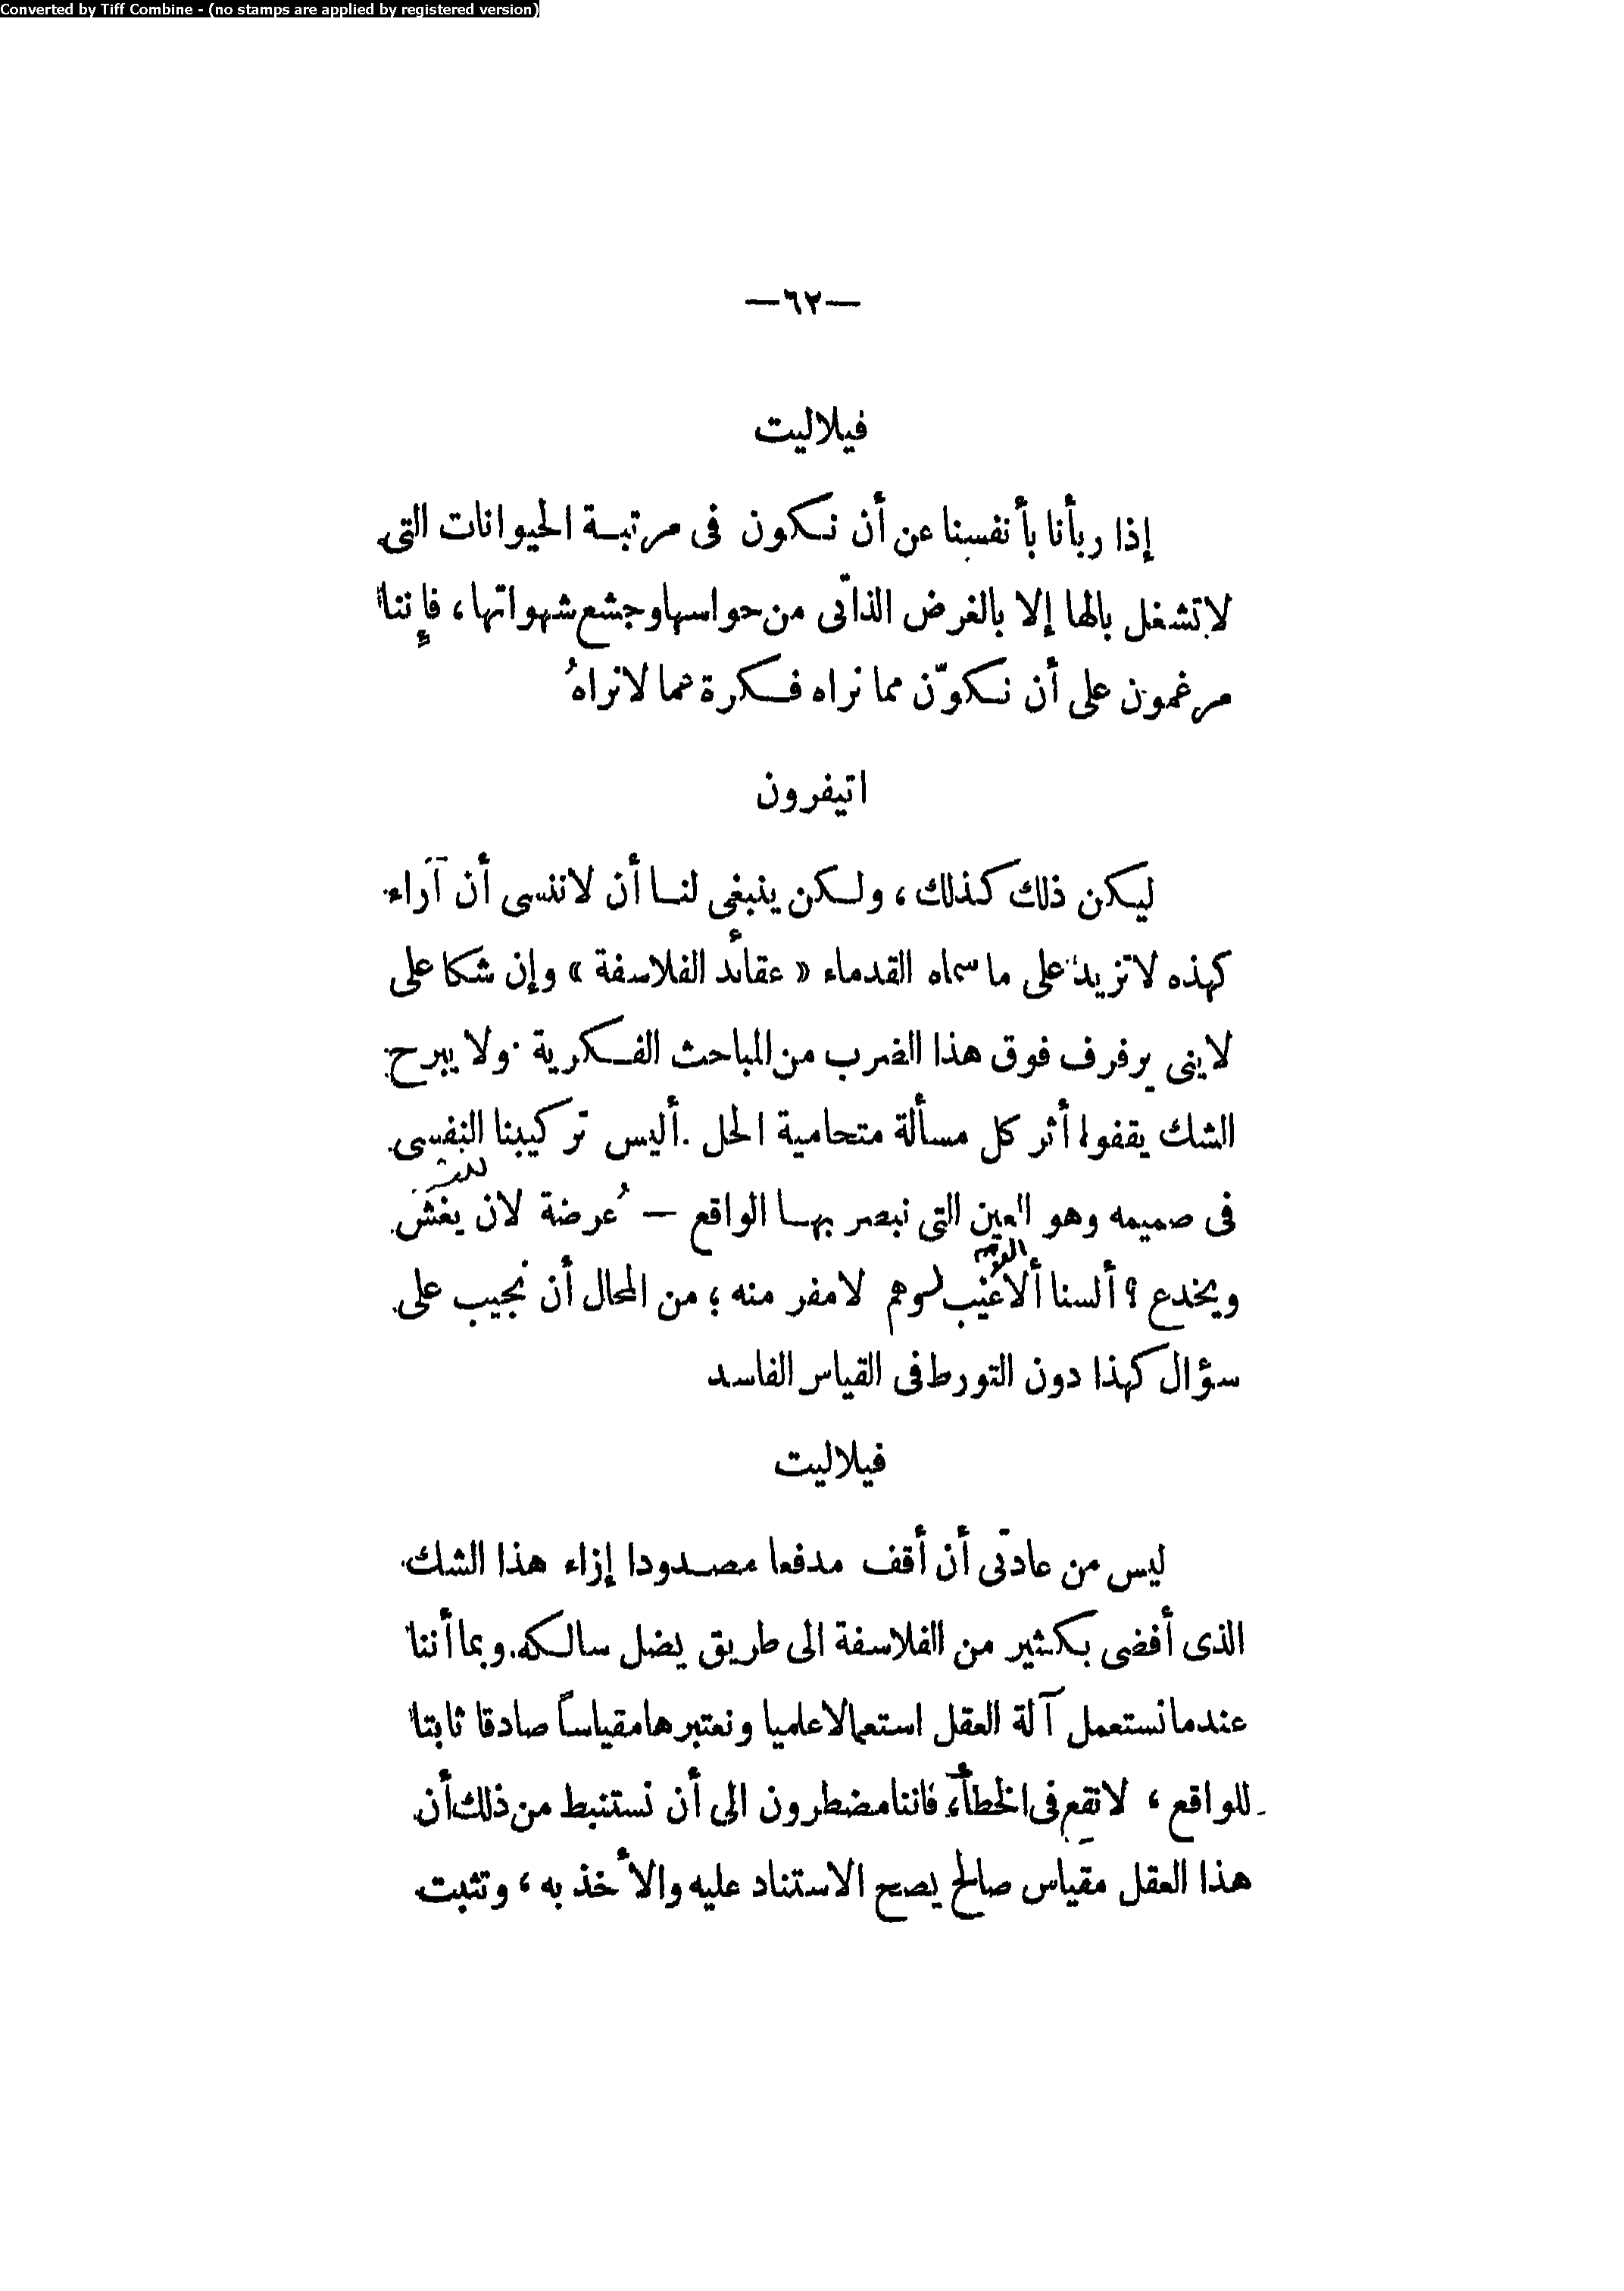 Converted by Tiff Combine - (no stamps are applied by registered version)
—٦٢—
فيلاليت
إذا ربأنا بأنفسنا عن أن نكون فى مرتبة الحيوانات التى
لا تشغل بالها إلا بالغرض الذاتى من حواسها وجشع شهواتها ، فإننا
مرغمون على أن نكوّن مما نراه فكرة عما لا نراهُ
اتيفرون
ليكن ذلك كذلك ، ولكن ينبغى لنا أن لا ننسى أن آراء
كهذه لا تزيد على ما سماه القدماء « عقائد الفلاسفة » وإن شكا على
لا ينى يرفرف فوق هذا الضرب من المباحث الفكرية . ولا يبرح
الشك يقفو أثر كل مسألة متحامية الحل . أليس تركيبنا النفسى
فى صميمه وهو العين التى نبصر بها الواقع — عُرضة لان يغش
ويخدع ؟ ألسنا ألاعيب لوهم لامفر منه ؛ من المحال أن نجيب على
سؤال كهذا دون التورط فى القياس الفاسد
فيلاليت
ليس من عادتى أن أقف مدفعا مصدودا إزاء هذا الشك
الذى أفضى بكثير من الفلاسفة الى طريق يضل سالكه. وبما أننا
عندما نستعمل آلة العقل استعمالا علميا ونعتبرها مقياساً صادقا ثابتا
للواقع ، لا نقع فى الخطأ، فاننا مضطرون الى أن نستنبط من ذلك أن
هذا العقل مقياس صالح يصح الاستناد عليه والأخذ به ، وتثبت